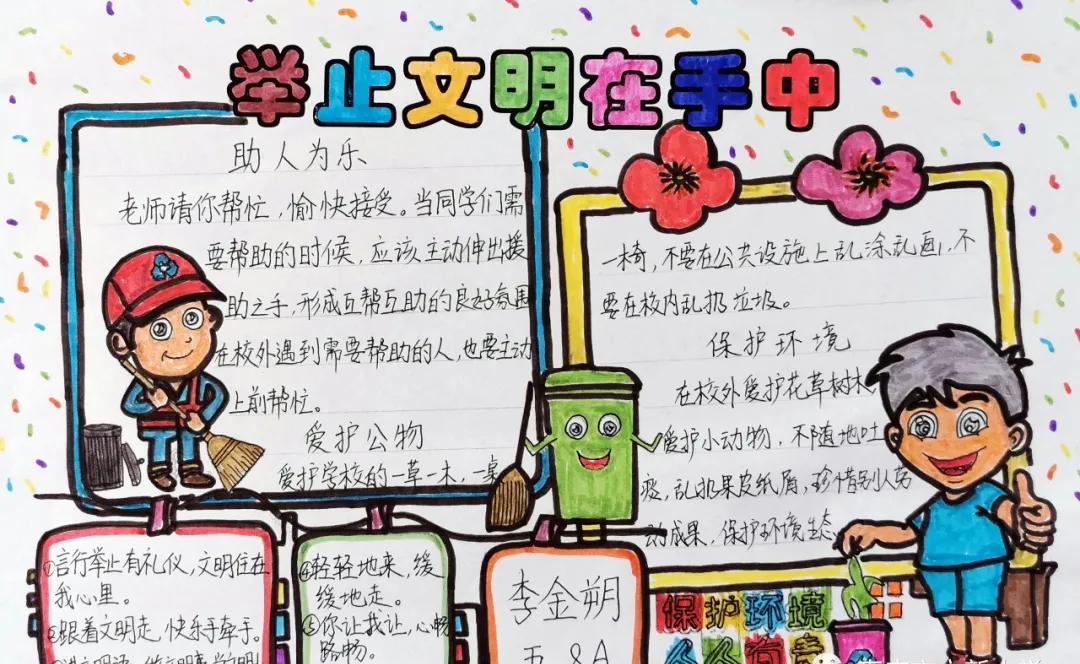 举止文明在手中
助人为乐
老师请你帮忙，愉快接受。当同学们需
要帮助的时候，应该主动伸出援
助之手，形成互帮互助的良好氛围
在校外遇到需要帮助的人，也要主动
上前帮忙。
爱护公物
爱护学校的一草一木，一桌
一椅，不要在公共设施上乱涂乱画，不
要在校内乱扔垃圾。
保护环境
在校外爱护花草树木
爱护小动物，不随地吐
痰，乱扔果皮纸屑，珍惜别人劳
动成果，保护环境生态
①言行举止有礼仪，文明住在
我心里。
②跟着文明走，快乐手牵手。
④轻轻地来，缓
缓地走。
⑤你让我让，心畅
路畅。
李金朔
保护环境
人人有责